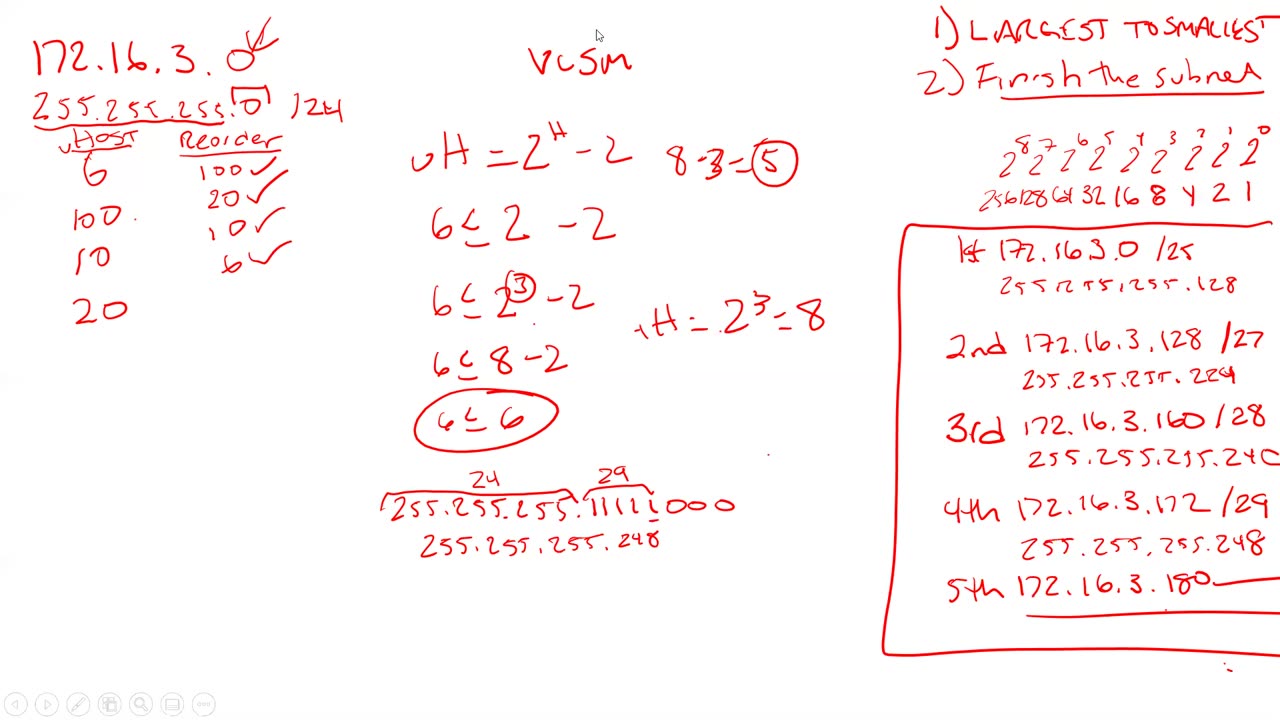 172.16.3.0
255.255.255.0 /24
uHOST Reorder
6 100
100 20
10 10
20 6
VLSM
uH = 2^H - 2 8-3=5
6 ≤ 2 - 2
6 ≤ 2^3 - 2
6 ≤ 8 - 2
6 ≤ 6
H = 2^3 = 8
24 29
255.255.255.11111000
255.255.255.248
1) LARGEST TO SMALLEST
2) Finish the subnet
2^8 2^7 2^6 2^5 2^4 2^3 2^2 2^1 2^0
256 128 64 32 16 8 4 2 1
1st 172.16 3.0 /25
255.255.255.128
2nd 172.16.3.128 /27
255.255.255.224
3rd 172.16.3.160 /28
255.255.255.240
4th 172.16.3.172 /29
255.255.255.248
5th 172.16.3.180